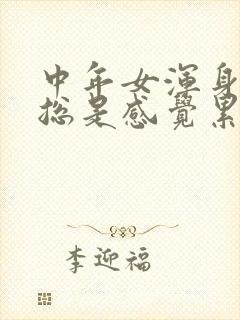 中年女渾身
總是感覺累
李迎福